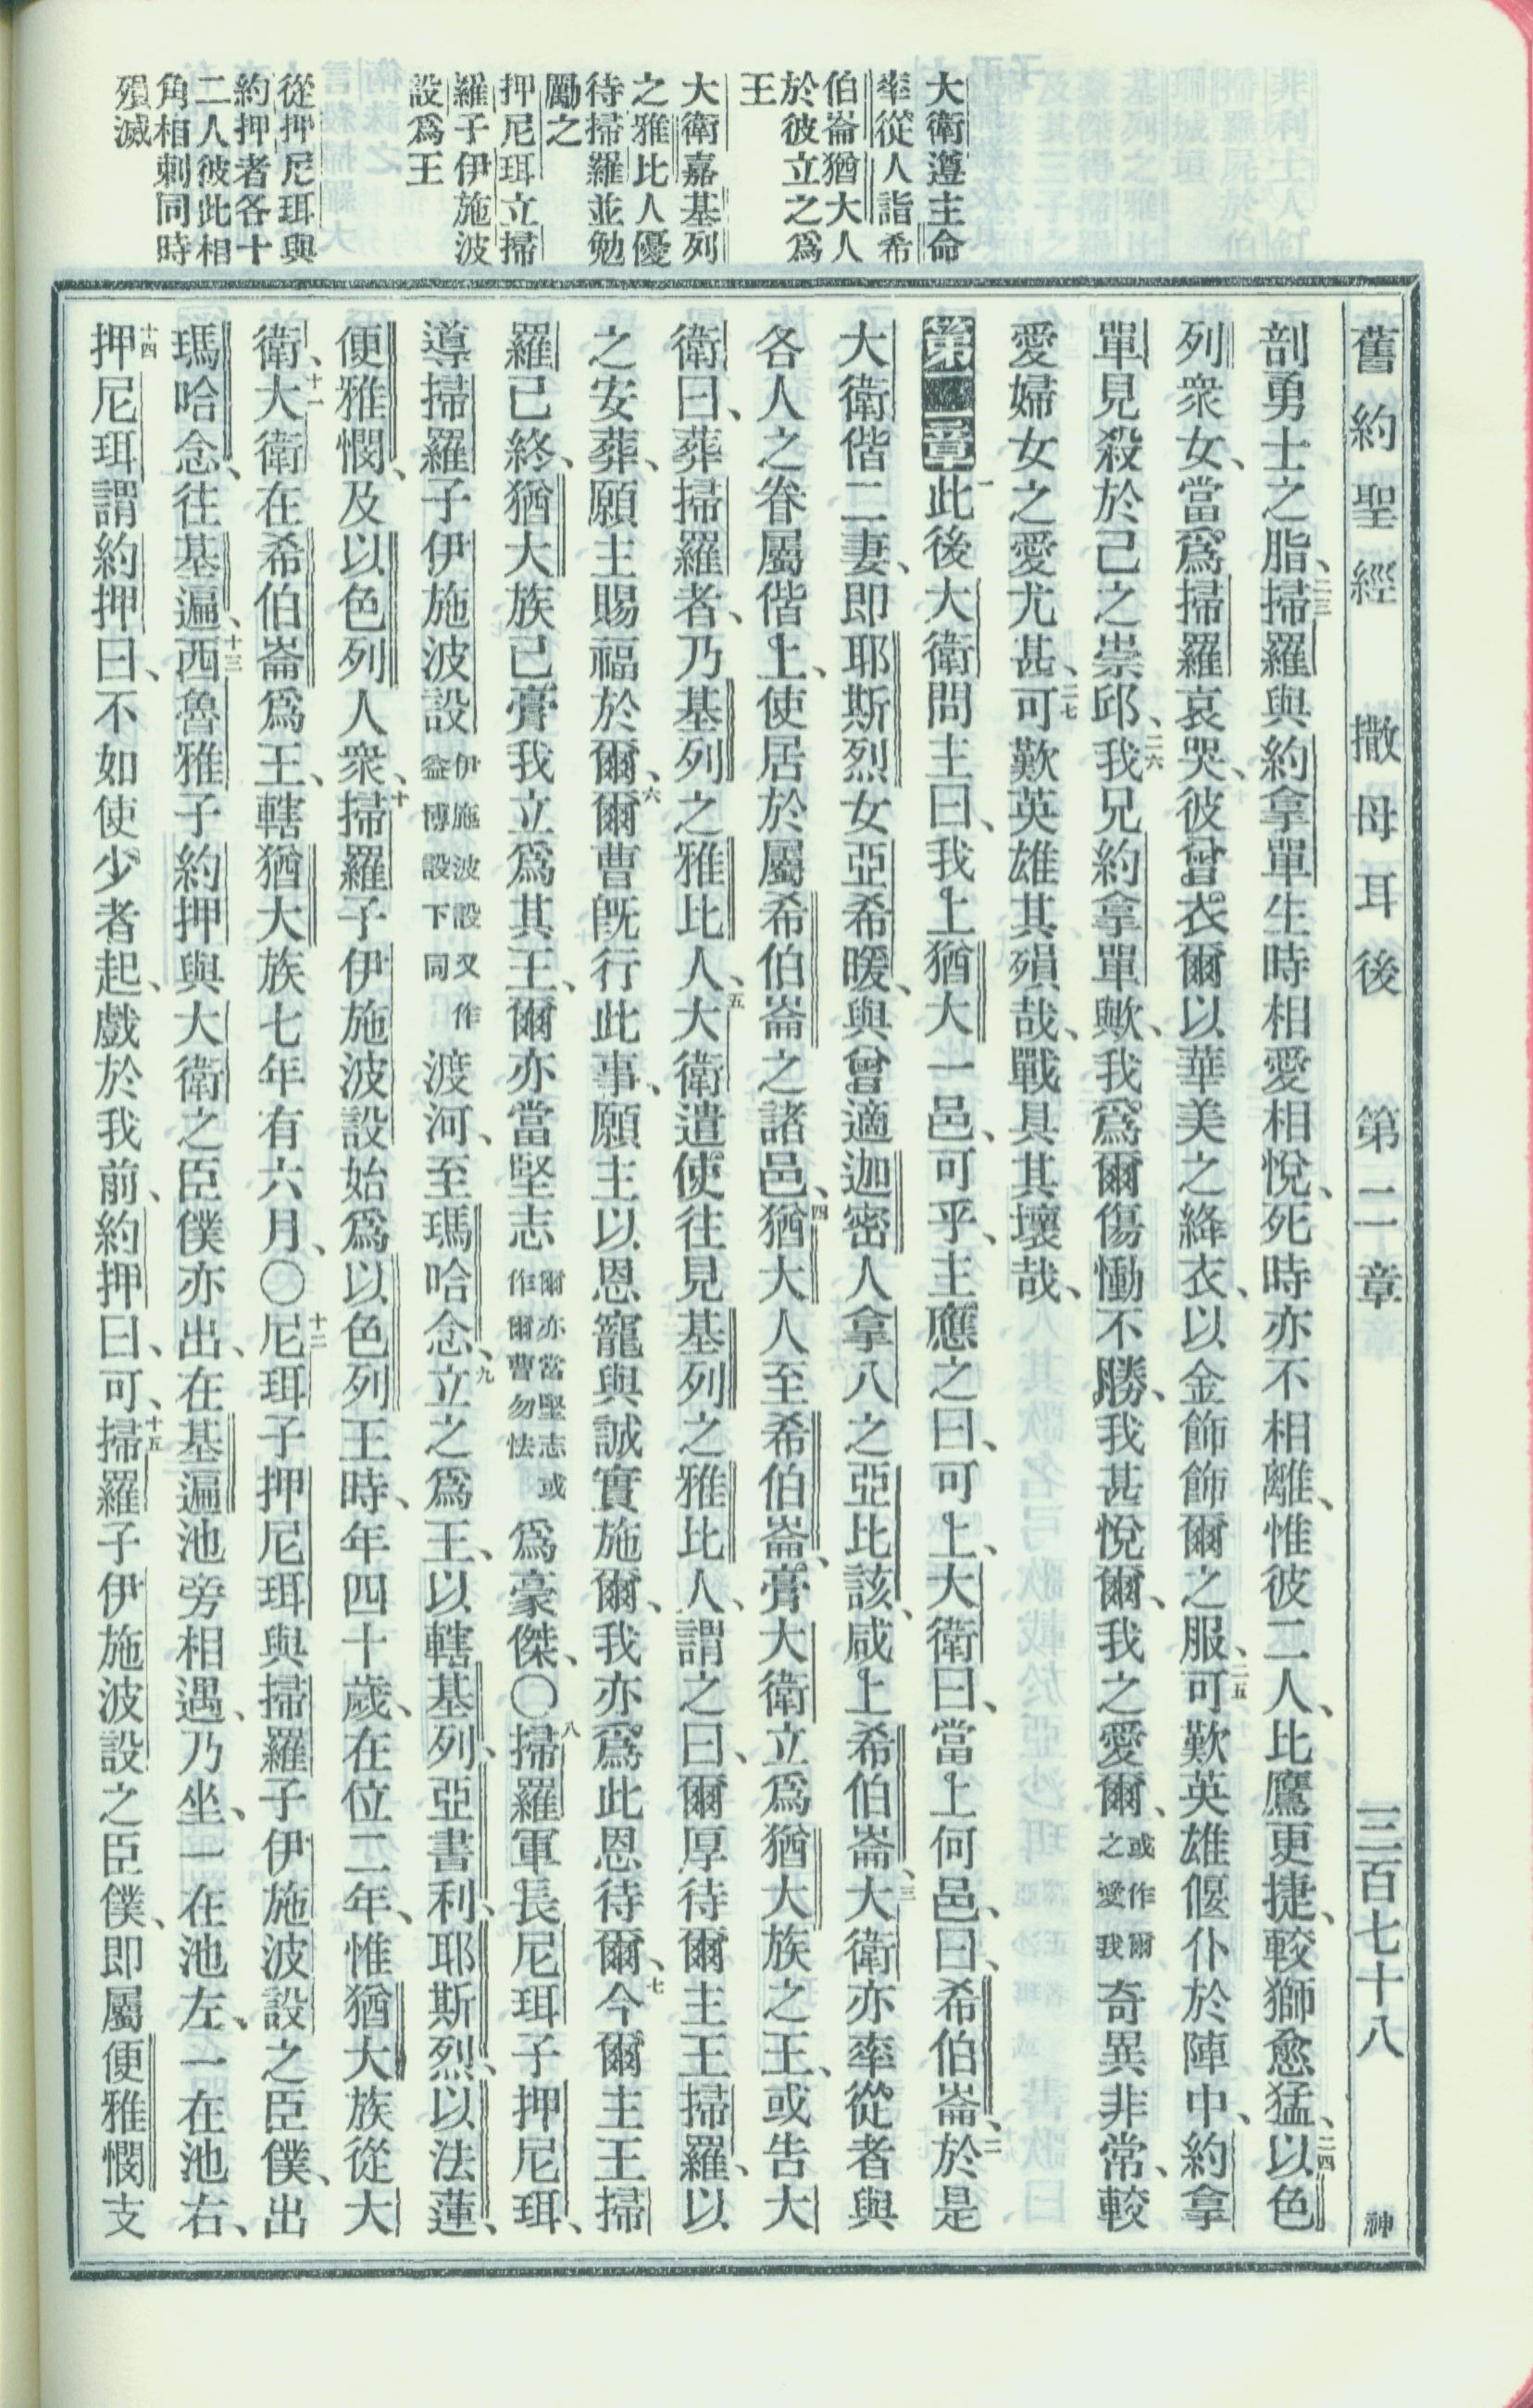 舊約聖經 撒母耳後 第二章 三百七十八 神
大衛遵主命
率從人詣希
伯崙猶大人
於彼立之爲
王
大衛嘉基列
之雅比人優
待掃羅並勉
勵之
押尼珥立掃
羅子伊施波
設爲王
從押尼珥與
約押者各十
二人彼此相
角相刺同時
殞滅
剖勇士之脂、二三掃羅與約拿單生時相愛相悅、死時亦不相離、惟彼二人、比鷹更捷、較獅愈猛、二四以色
列衆女、當爲掃羅哀哭、彼曾衣爾以華美之絳衣、以金飾飾爾之服、二五可歎英雄偃仆於陣中、約拿
單見殺於己之崇邱、二六我兄約拿單歟、我爲爾傷慟不勝、我甚悅爾、我之愛爾、或作爾之愛我奇異非常、較
愛婦女之愛尤甚、二七可歎英雄其殞哉、戰具其壞哉、
第二章一此後大衛問主曰、我上猶大一邑、可乎、主應之曰、可上、大衛曰、當上何邑、曰、希伯崙、二於是
大衛偕二妻、即耶斯烈女亞希暖、與曾適迦密人拿八之亞比該、咸上希伯崙、三大衛亦率從者與
各人之眷屬偕上、使居於屬希伯崙之諸邑、四猶大人至希伯崙、膏大衛立爲猶大族之王、或告大
衛曰、葬掃羅者、乃基列之雅比人、五大衛遣使往見基列之雅比人、謂之曰、爾厚待爾主王掃羅、以
之安葬、願主賜福於爾、六爾曹旣行此事、願主以恩寵與誠實施爾、我亦爲此恩待爾、七今爾主王掃
羅已終、猶大族已膏我立爲其王、爾亦當堅志爾亦當堅志或作爾曹勿怯爲豪傑、〇八掃羅軍長尼珥子押尼珥、
導掃羅子伊施波設伊施波設又作益博設下同渡河、至瑪哈念、九立之爲王、以轄基列、亞書利、耶斯烈、以法蓮、
便雅憫、及以色列人衆、十掃羅子伊施波設始爲以色列王時、年四十歲、在位二年、惟猶大族從大
衛、十一大衛在希伯崙爲王、轄猶大族七年有六月、〇十二尼珥子押尼珥與掃羅子伊施波設之臣僕、出
瑪哈念、往基遍、十三西魯雅子約押與大衛之臣僕亦出、在基遍池旁相遇、乃坐、一在池左、一在池右、
十四押尼珥謂約押曰、不如使少者起、戲於我前、約押曰、可、十五掃羅子伊施波設之臣僕、即屬便雅憫支